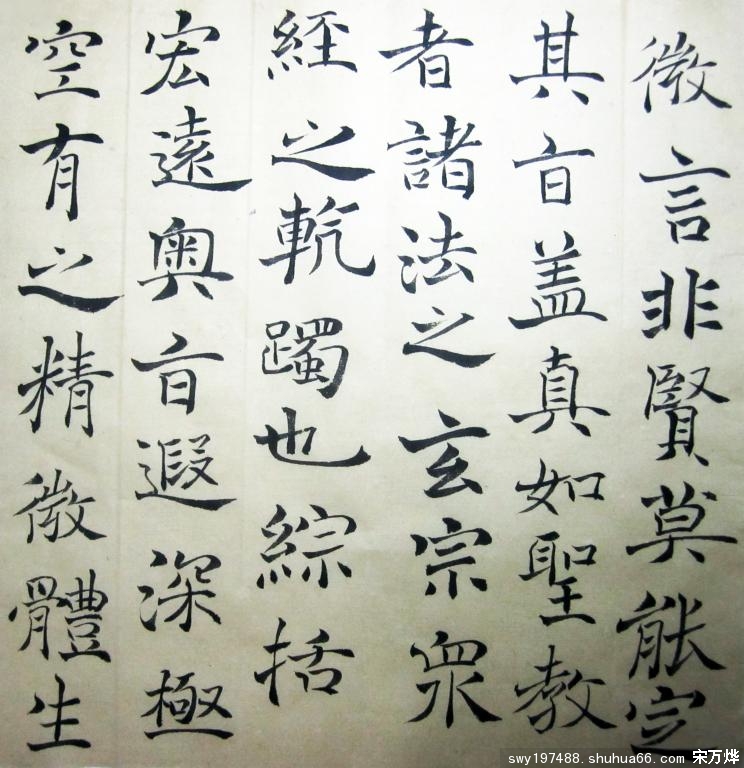 微言非賢莫能定
其旨盖真如聖教
者諸法之玄宗衆
經之軏躅也綜括
宏遠奥旨遐深極
空有之精微體生
swy197488.shuhua66.com 宋万烨